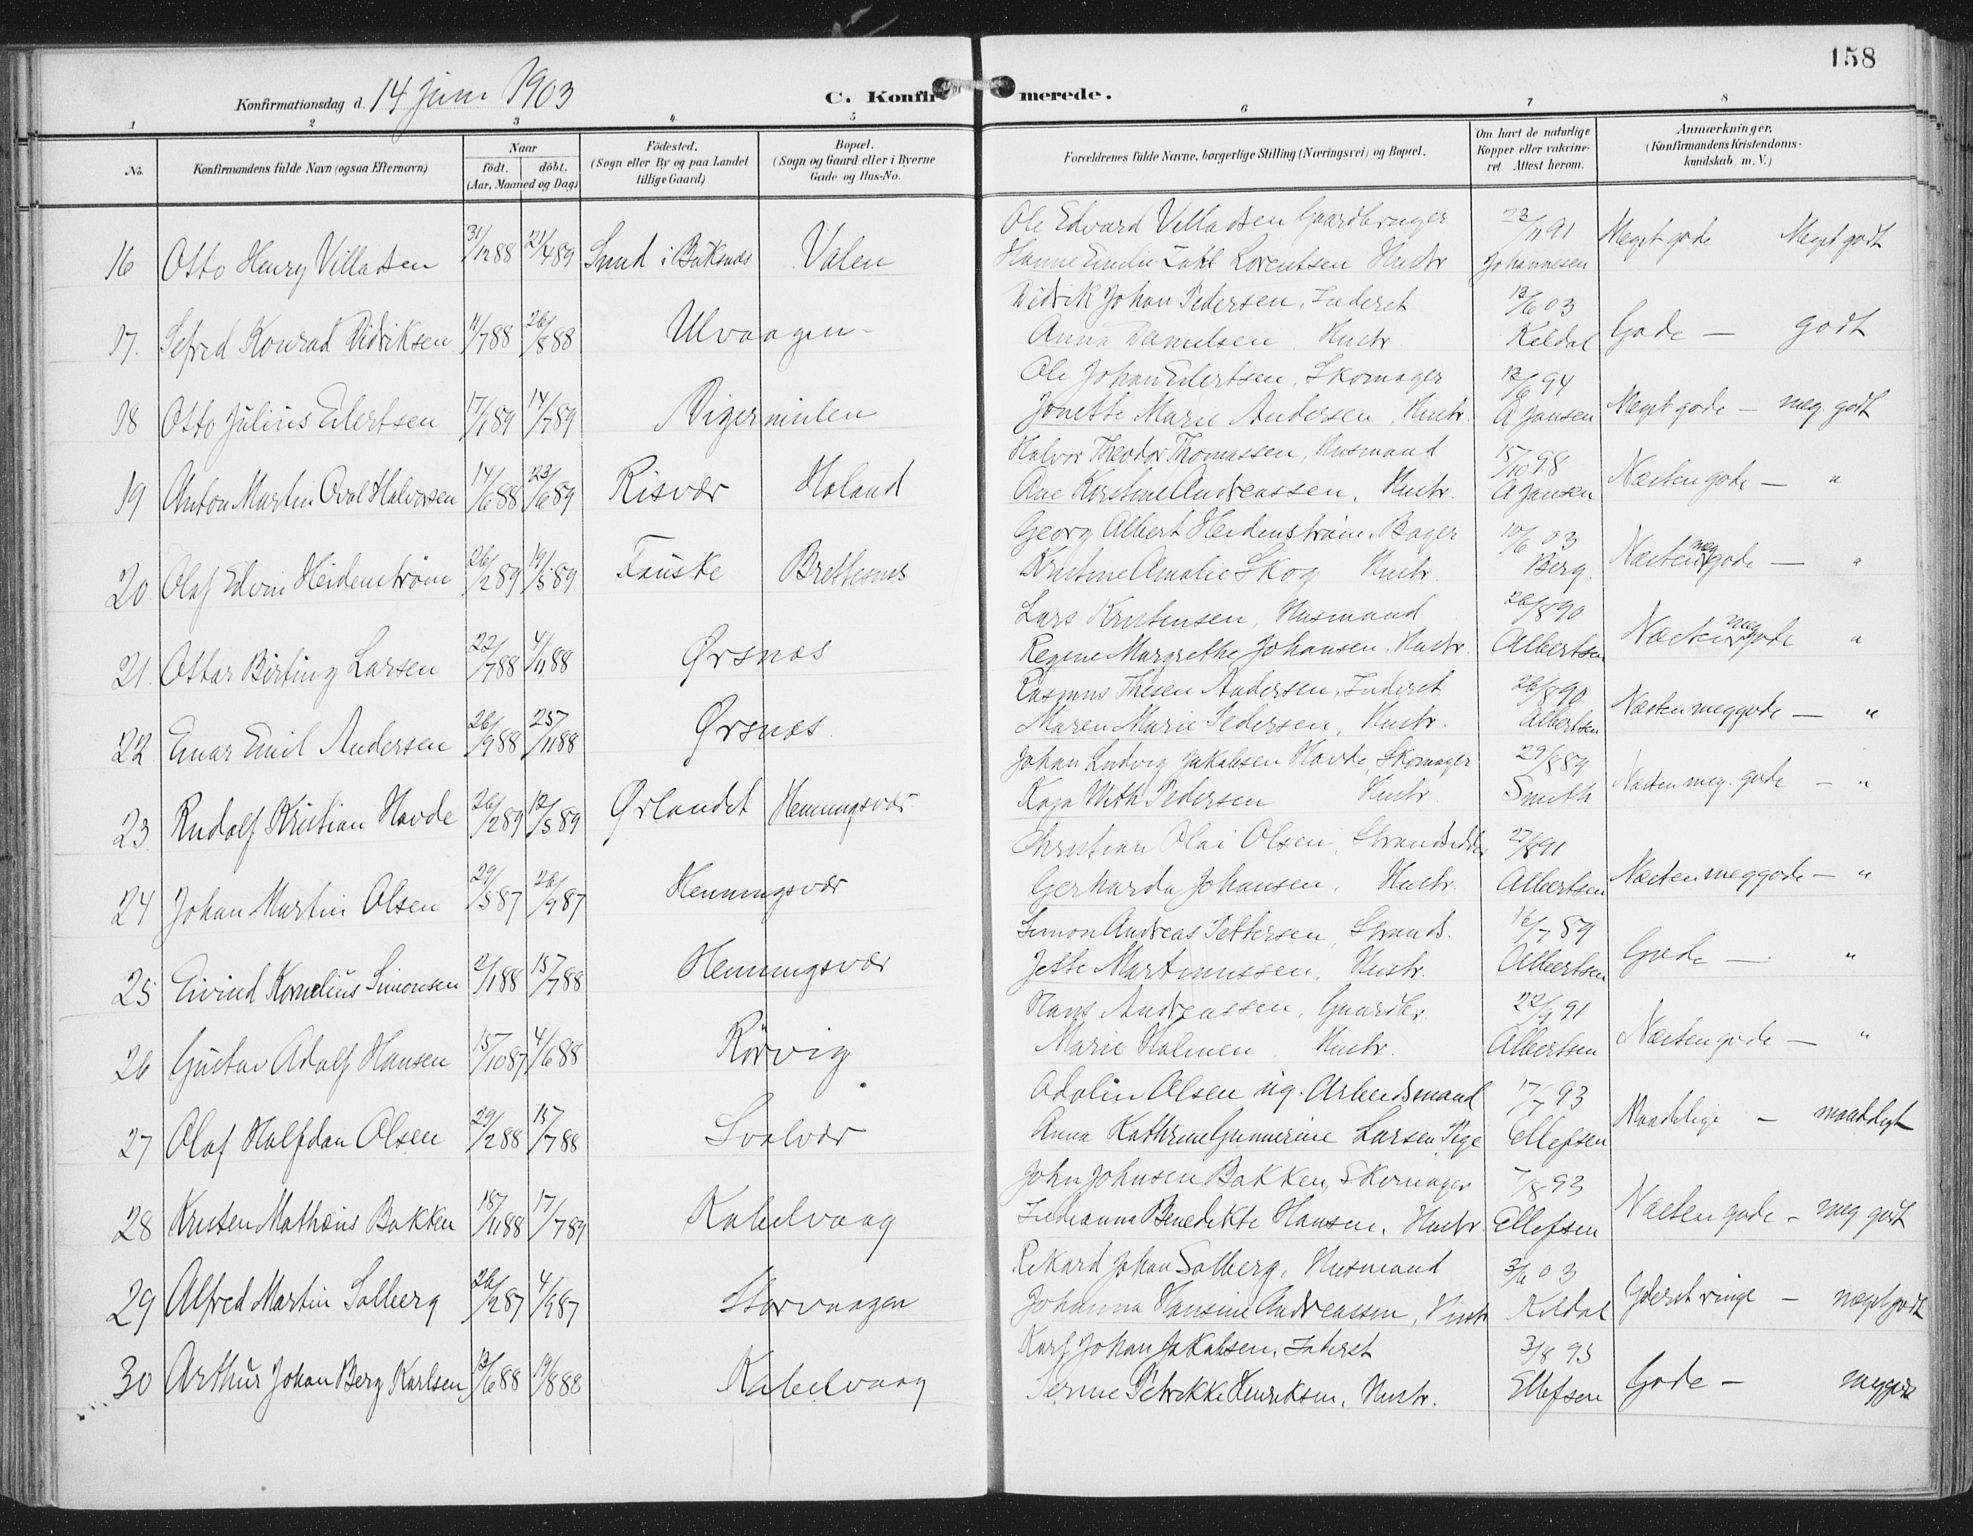 158
Konfirmationsdag d. 14 juni 1903
C. Konfirmerede.
1 2 3 4 5 6 7 8
No.
Konfirmandens fulde Navn (ogsaa Efternavn)
Naar
födt. döbt.
(Aar, Maaned og Dag)
Födested.
(Sogn eller By og paa Landet
tillige Gaard)
Bopæl.
(Sogn og Gaard eller i Byerne
Gade og Hus-No.
Forældrenes fulde Navne, borgerlige Stilling (Næringsvei) og Bopæl.
Om havt de naturlige
Kopper eller vakcine-
ret. Attest herom.
Anmærkninger.
(Konfirmandens Kristendoms-
kundskab m. V.)
Ole Edvard Villadsen Gaardbruger 23/11 91
16 Otto Henry Villadsen 31/12 88 21/4 89 Sund i Buksnæs Valen Hanne Emilie Zahl Lorentsen Hustr Johannesen Meget gode Meget godt
Didrik Johan Pedersen, Inderst 12/6 03
17. Sefred Konrad Didriksen 11/7 88 26/8 88 Ulvaagen Anna Danielsen Hustr. Keldal Gode — godt
Ole Johan Eilertsen, Skomager 12/6 94
18 Otto Julius Eilertsen 17/1 89 14/7 89 Jonette Marie Andersen, Hustr. A Jansen Meget gode — meg. godt
Halvor Theodor Thomassen, Husmand 15/10 98
19 Anton Martin Oval Halvorsen 14/6 88 23/6 89 Risvær Holand Ane Kirstine Andreassen, Hustr. A Jansen Næsten gode — "
Georg Albert Heidenstrøm, Bager 10/6 03
20. Olaf Edvin Heidenstrøm 26/2 89 19/5 89 Fauske Brettesnes Kristine Amalie Skog Hustr. Berg. Næsten meg gode — "
Lars Kristensen, Husmand 26/8 90
21. Ottar Birting Larsen 22/7 88 4/11 88 Ørsnæs Regine Margrethe Johansen, Hustr. Albertsen Næsten meg gode "
Rasmus Thesen Andersen, Inderst 26/8 90
22 Einar Emil Andersen 26/9 88 25/11 88 Ørsnæs. Maren Marie Pedersen, Hustr. Albertsen Næsten meg gode — "
Johan Ludvig Jakobsen Hovde, Skomager 29/8 89
23. Rudolf Kristian Hovde 26/2 89 12/5 89 Ørlandet Henningsvær Kaja With Pedersen Hustr. Smith Næsten meg. gode — "
Christian Olai Olsen, Strandsidder 27/8 91
24 Johan Martin Olsen 29/5 87 26/9 87 Henningsvær Gerharda Johansen, Hustr. Albertsen Næsten meg gode — "
Simon Andreas Pettersen, Strands. 16/7 89
25 Eivind Kornelius Simonsen 2/1 88 15/7 88 Henningsvær Jette Martinussen, Hustr. Albertsen Gode — "
Hans Andreassen, Gaardbr. 22/9 91
26 Gustav Adolf Hansen 15/10 87 4/6 88 Rørvig Marie Holmen Hustr. Albertsen Næsten gode — "
Adolin Olsen ug. Arbeidsmand 17/7 93
27 Olaf Halfdan Olsen 29/2 88 15/7 88 Svolvær Anna Kathrine Gunnerine Larsen, Pige Ellefsen Maadelige — maadeligt
John Johnsen Bakken, Skomager 7/8 93
28 Kristen Mathæus Bakken 18/11 88 17/7 89 Kabelvaag Indianna Benedikte Hansen, Hustr. Ellefsen Næsten gode — meg godt
Rikard Johan Solberg, Husmand 3/6 03
29 Alfred Martin Solberg 26/2 87 4/9 87 Storvaagen Johanna Hansine Andreassen, Hustr Keldal Yderst ringe — meget godt
Karl Johan Jakobsen, Inderst 3/8 93
30 Arthur Johan Berg Karlsen 13/6 88 19/8 88 Kabelvaag Petrikke Henriksen, Hustr. Ellefsen Gode — meg godt